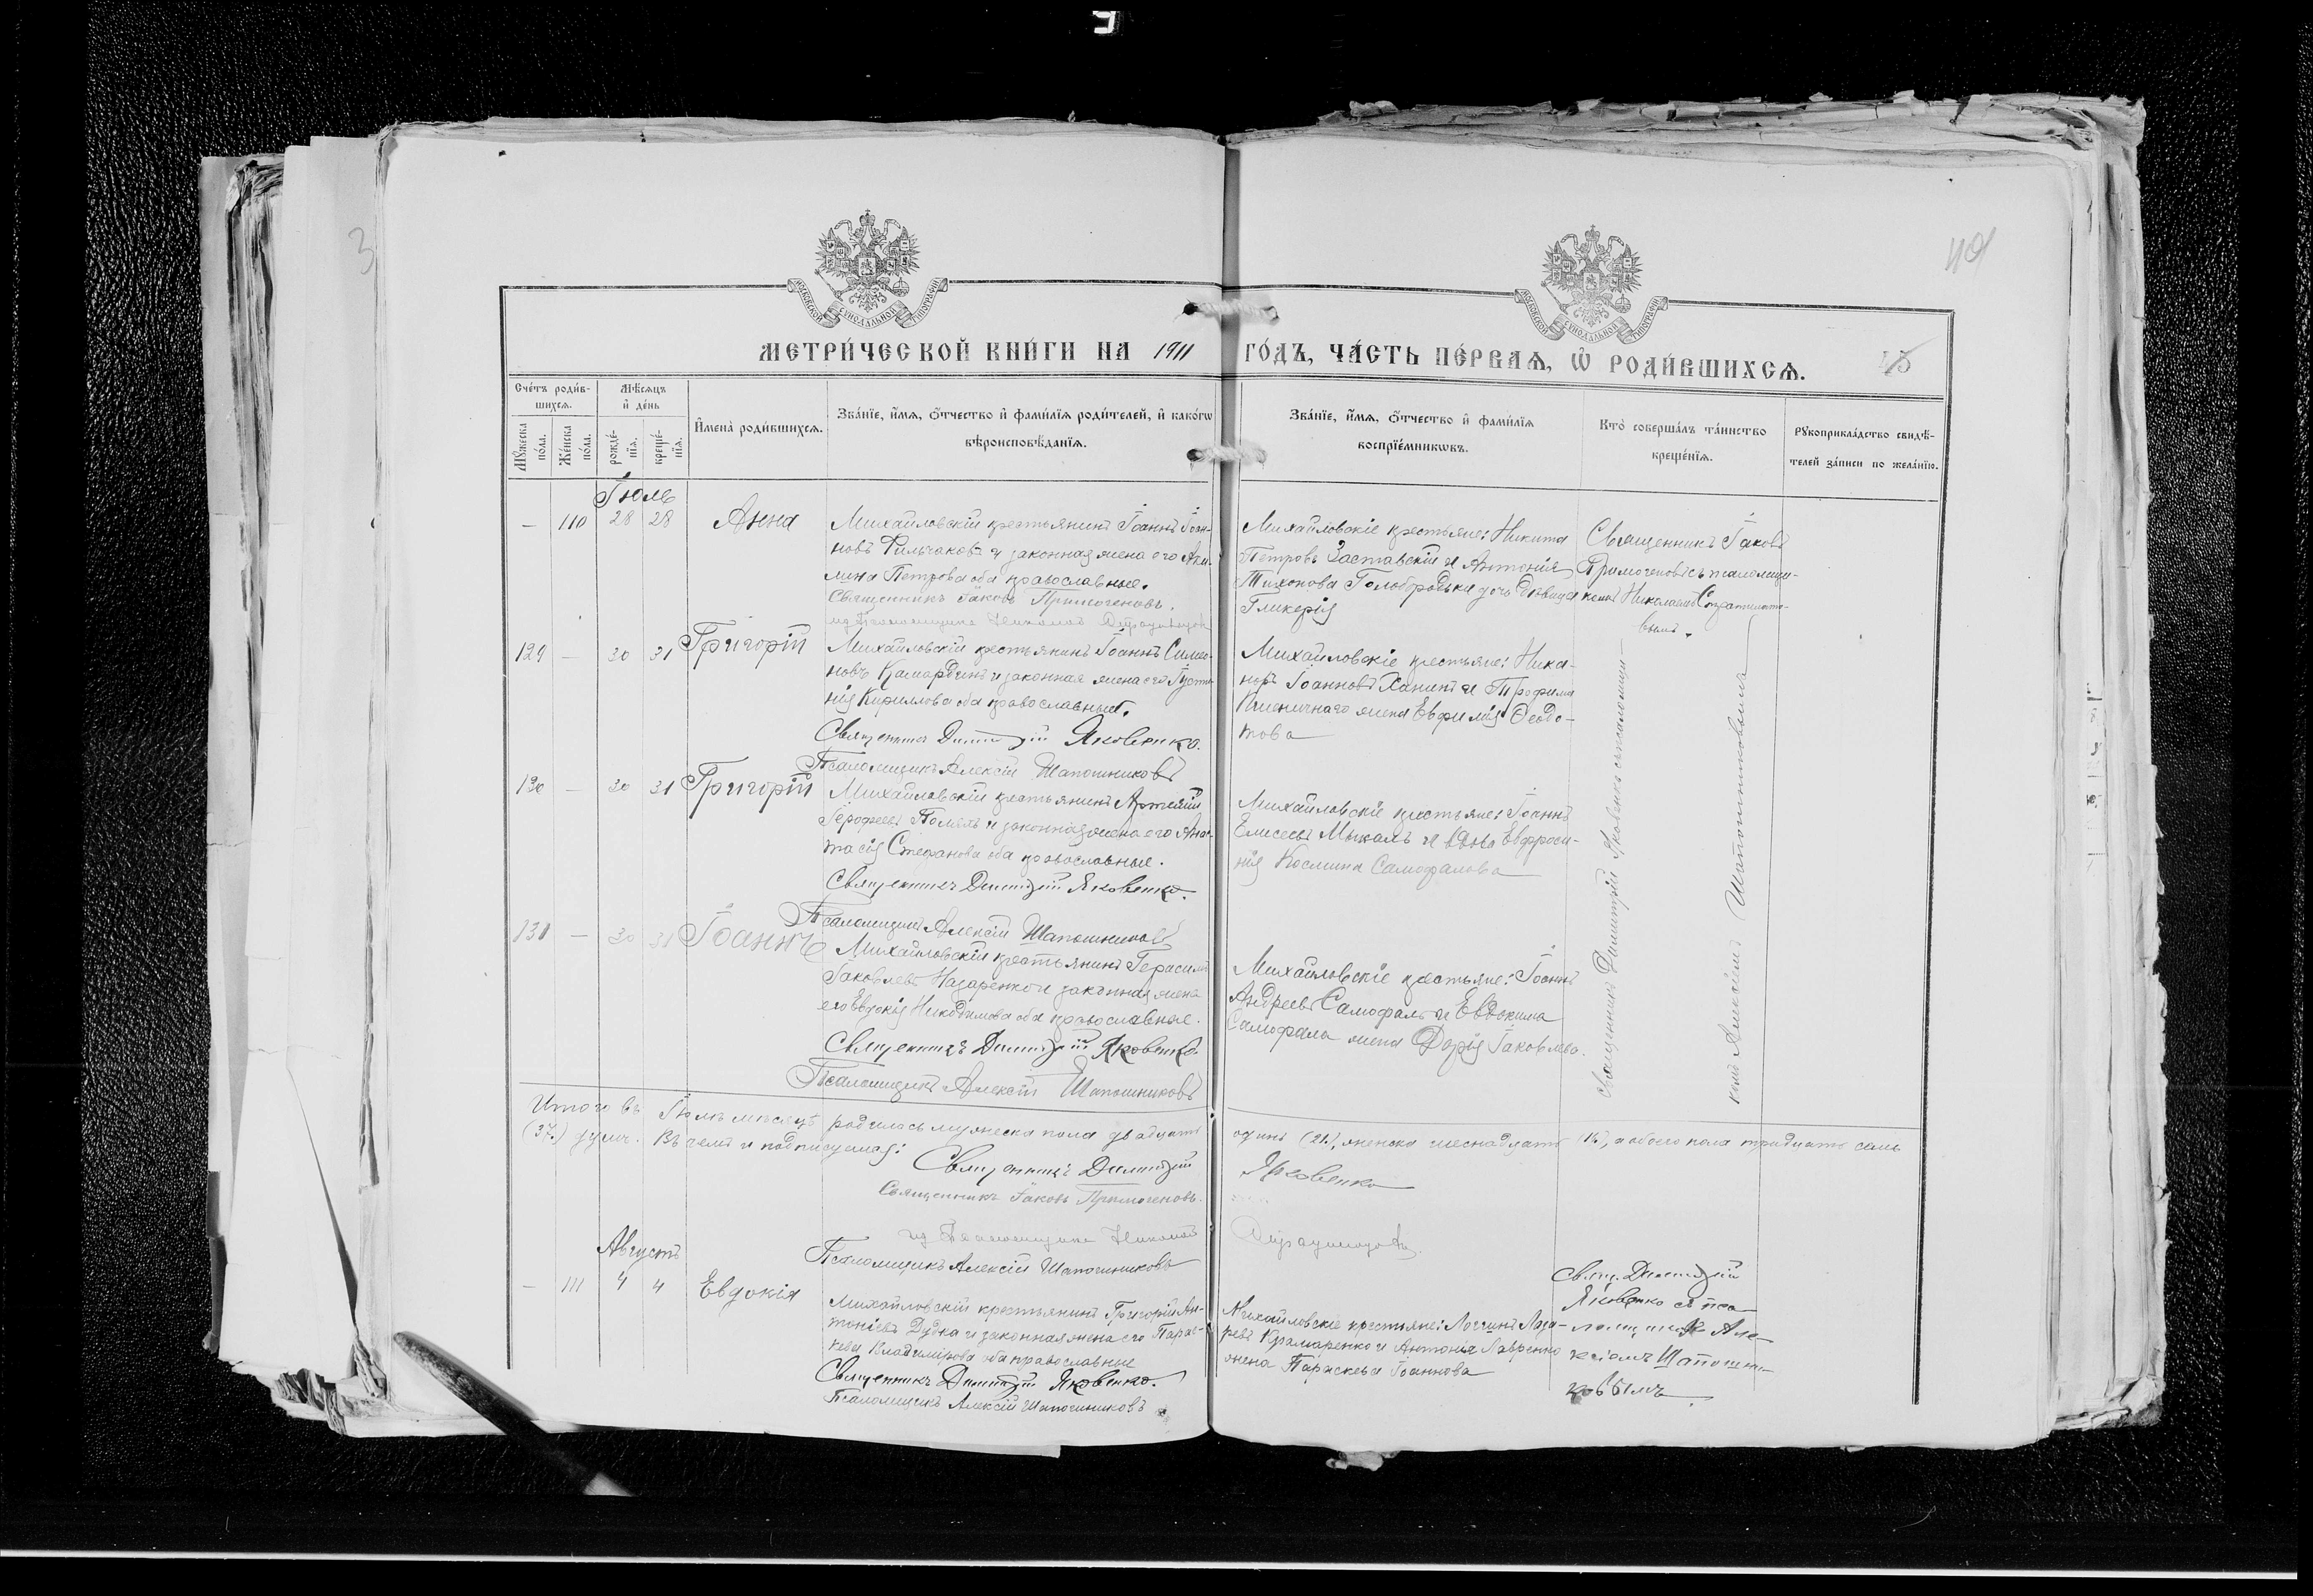 3
49
45
МОСКОВСКОЙ СУНОДАЛЬНОЙ ТИПОГРАФІИ
МОСКОВСКОЙ СУНОДАЛЬНОЙ ТИПОГРАФІИ
МЕТРИ́ЧЕСКОЙ КНИ́ГИ НА 1911 ГО́ДЪ, ЧА́СТЬ ПЕ́РВАѦ, Ѡ҆ РОДИ́ВШИХСѦ.
Сче́тъ роди́в-
шихсѧ.
Мꙋ́жеска по́ла.
Же́нска по́ла.
Мѣ́сѧцъ
и҆ де́нь
рожде́-
нїѧ.
креще́-
нїѧ.
И҆мена̀ роди́вшихсѧ.
Зва́нїе, и҆́мѧ, ѻ҆́тчество и҆ фами́лїѧ роди́телей, и҆ како́гѡ
вѣроисповѣ́данїѧ.
Зва́нїе, и҆́мѧ, ѻ҆́тчество и҆ фами́лїѧ
воспрїе́мникѡвъ.
Кто̀ соверша́лъ та́инство
креще́нїѧ.
Рꙋкоприкла́дство свидѣ́-
телей за́писи по жела́нїю.
Іюль
— 110 28 28 Анна
Михайловскій крестьянинъ Іоаннъ Іоан-
новъ Фильчаковъ и законная жена его Аки-
лина Петрова оба православные.
Священникъ Іаковъ Примогеновъ.
ид Псаломщика Николай
Михайловскіе крестьяне: Никита
Петровъ Заставскій и Антонія
Тихонова Голобородька дочь девица
Гликерія
Священникъ Іаковъ
Примогеновъ съ псаломщи-
комъ Николаемъ
вымъ.
129 — 30 31 Григорій
Михайловскій крестьянинъ Іоаннъ Симео-
новъ Камардинъ и законная жена его Іусти-
нія Кириллова оба православные.
Священникъ Димитрій Яковенко.
Псаломщикъ Алексій Шапошниковъ
Михайловскіе крестьяне: Ника-
норъ Іоанновъ Ханинъ и Трофима
Пшеничнаго жена Евфимія Ѳеодо-
това
130 — 30 31 Григорій
Михайловскій крестьянинъ Артемій
Іерофеевъ и законная жена его Анас-
тасія Стефанова оба православные.
Священникъ Димитрій Яковенко.
Псаломщикъ Алексій Шапошниковъ
Михайловскіе крестьяне: Іоаннъ
Елисеевъ Мыкалъ и вдова Евфроси-
нія Космина Самофалова
131 — 30 31 Іоаннъ
Михайловскій крестьянинъ Герасимъ
Іаковлевъ Назаренко и законная жена
его Евдокія Никодимова оба православные.
Священникъ Димитрій Яковенко.
Псаломщикъ Алексій Шапошниковъ
Михайловскіе крестьяне: Іоаннъ
Андреевъ Самофалъ и Евдокима
Самофала жена Дарія Іаковлева.
Священникъ Димитрій Яковенко съ псаломщи-
комъ Алексіемъ Шапошниковымъ
Итого въ Іюлѣ мѣсяцѣ родилось мужеска пола двадцать одинъ (21), женска шеснадцать (16), а обоего пола тридцать семь
(37.) душъ. Въ чемъ и подписуемся:
Священникъ Димитрій Яковенко
Священникъ Іаковъ Примогеновъ.
ид Псаломщика Николай
Псаломщикъ Алексій Шапошниковъ
Августъ
— 111 4 4 Евдокія
Михайловскій крестьянинъ Григорій Ан-
тоніевъ Дудка и законная жена его Парас-
кева Владимірова оба православные
Священникъ Димитрій Яковенко.
Псаломщикъ Алексій Шапошниковъ
Михайловскіе крестьяне: Логгинъ Лаза-
ревъ Крамаренко и Антонія Лавренко
жена Параскева Іоаннова
Свящ. Димитрій
Яковенко съ пса-
ломщикомъ Але-
ксіемъ Шапошни-
ковымъ.